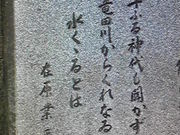 千早ふる神代も聞かず
竜田川からくれなゐ
水くゝるとは
在原業平